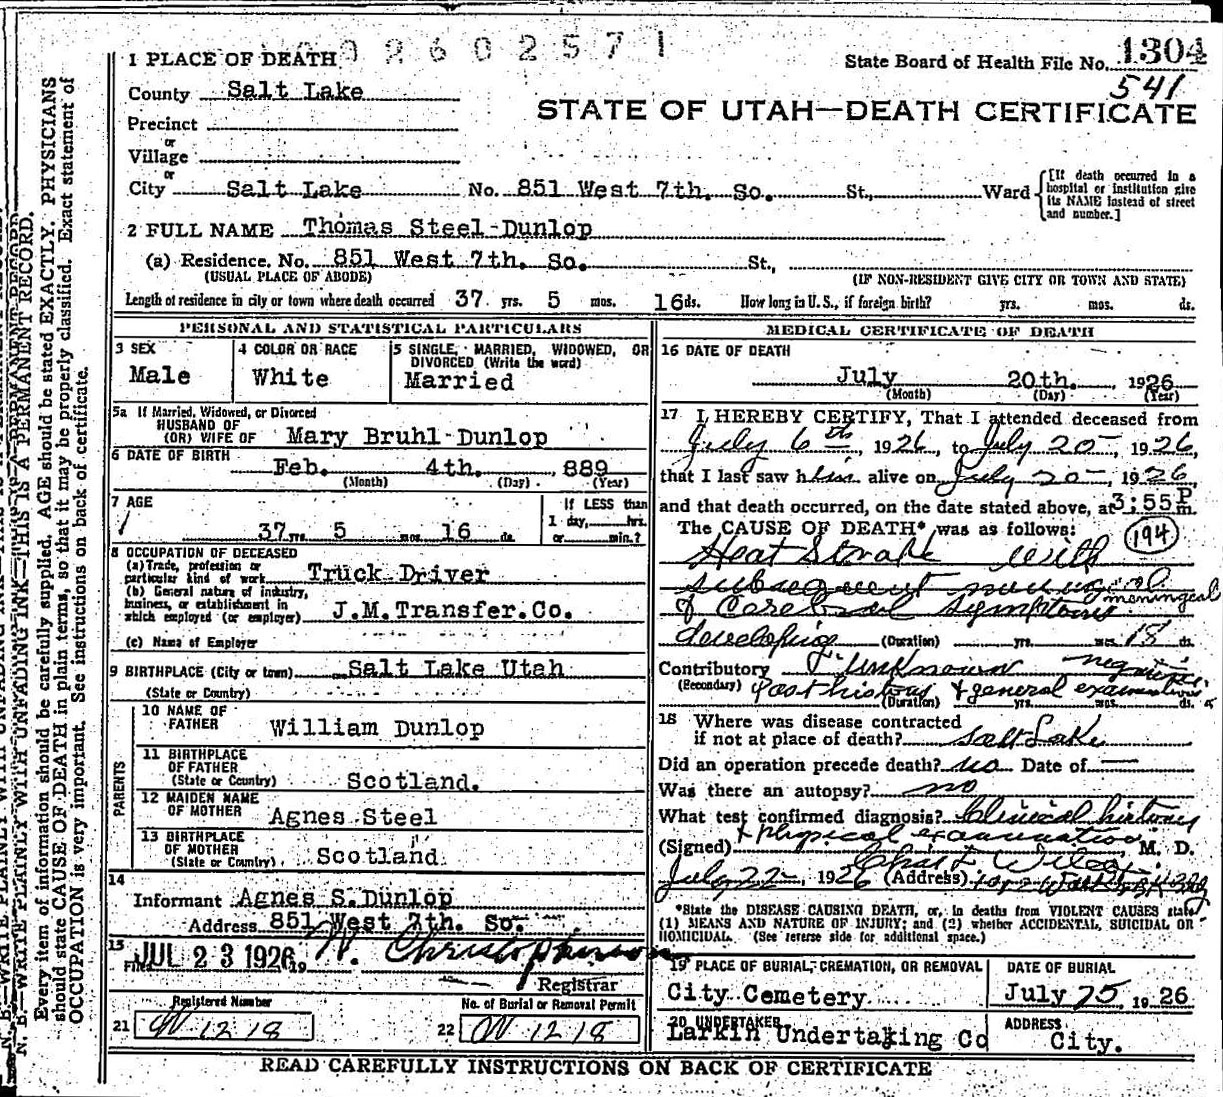 0 2 6 0 2 5 7 1
1 PLACE OF DEATH
State Board of Health File No. 1304
541
County Salt Lake
STATE OF UTAH—DEATH CERTIFICATE
Precinct
or
Village
or
City Salt Lake No. 851 West 7th. So. St., Ward
[If death occurred in a hospital or institution give its NAME instead of street and number.]
2 FULL NAME Thomas Steel-Dunlop
(a) Residence, No. 851 West 7th. So. St.,
(USUAL PLACE OF ABODE) (IF NON-RESIDENT GIVE CITY OR TOWN AND STATE)
Length of residence in city or town where death occurred 37 yrs. 5 mos. 16 ds. How long in U.S., if foreign birth? yrs. mos. ds.
PERSONAL AND STATISTICAL PARTICULARS
3 SEX
Male
4 COLOR OR RACE
White
5 SINGLE, MARRIED, WIDOWED, OR
DIVORCED (Write the word)
Married
5a If Married, Widowed, or Divorced
HUSBAND OF
(OR) WIFE OF Mary Bruhl-Dunlop
6 DATE OF BIRTH
Feb. 4th. , 889
(Month) (Day) (Year)
7 AGE
37 yrs. 5 mos. 16 ds.
If LESS than
1 day, hrs.
or min.?
8 OCCUPATION OF DECEASED
(a) Trade, profession or
particular kind of work Truck Driver
(b) General nature of industry,
business, or establishment in
which employed (or employer) J.M.Transfer.Co.
(c) Name of Employer
9 BIRTHPLACE (City or town) Salt Lake Utah
(State or Country)
PARENTS
10 NAME OF
FATHER William Dunlop
11 BIRTHPLACE
OF FATHER
(State or Country) Scotland.
12 MAIDEN NAME
OF MOTHER Agnes Steel
13 BIRTHPLACE
OF MOTHER
(State or Country) Scotland
14
Informant Agnes S. Dunlop
Address 851 West 7th. So.
15
Filed JUL 23 1926 19 W. Christopherson
Registrar
Registered Number
21 W 1218
No. of Burial or Removal Permit
22 W 1218
MEDICAL CERTIFICATE OF DEATH
16 DATE OF DEATH
July 20th. , 1926
(Month) (Day) (Year)
17 I HEREBY CERTIFY, That I attended deceased from
July 6th 1926, to July 20 , 1926,
that I last saw him alive on July 20 , 1926,
and that death occurred, on the date stated above, at 3:55 P m.
The CAUSE OF DEATH* was as follows: 194
Heat Stroke with
subsequent meningeal
& Cerebral symptoms
developing (Duration) yrs. mos. 18 ds.
Contributory unknown negative
(Secondary) past history & general examination
(Duration) yrs. mos. ds.
18 Where was disease contracted
if not at place of death? Salt Lake
Did an operation precede death? no Date of —
Was there an autopsy? no
What test confirmed diagnosis? Clinical history
& physical examination
(Signed) Chas L Wilcox M. D.
July 22 , 1926 (Address)
*State the DISEASE CAUSING DEATH, or, in deaths from VIOLENT CAUSES state
(1) MEANS AND NATURE OF INJURY; and (2) whether ACCIDENTAL, SUICIDAL OR
HOMICIDAL. (See reverse side for additional space.)
19 PLACE OF BURIAL, CREMATION, OR REMOVAL
City Cemetery
DATE OF BURIAL
July 25, 1926
20 UNDERTAKER
Larkin Undertaking Co
ADDRESS
City.
READ CAREFULLY INSTRUCTIONS ON BACK OF CERTIFICATE
N. B.—WRITE PLAINLY WITH UNFADING INK—THIS IS A PERMANENT RECORD.
Every item of information should be carefully supplied. AGE should be stated EXACTLY. PHYSICIANS
should state CAUSE OF DEATH in plain terms, so that it may be properly classified. Exact statement of
OCCUPATION is very important. See instructions on back of certificate.